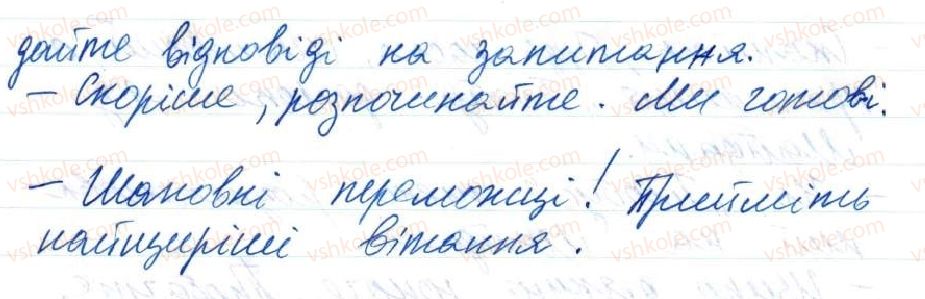 дайте відповіді на запитання.
– Скоріше, розпочинайте. Ми готові.
– Шановні переможці! Прийміть
найщиріші вітання.